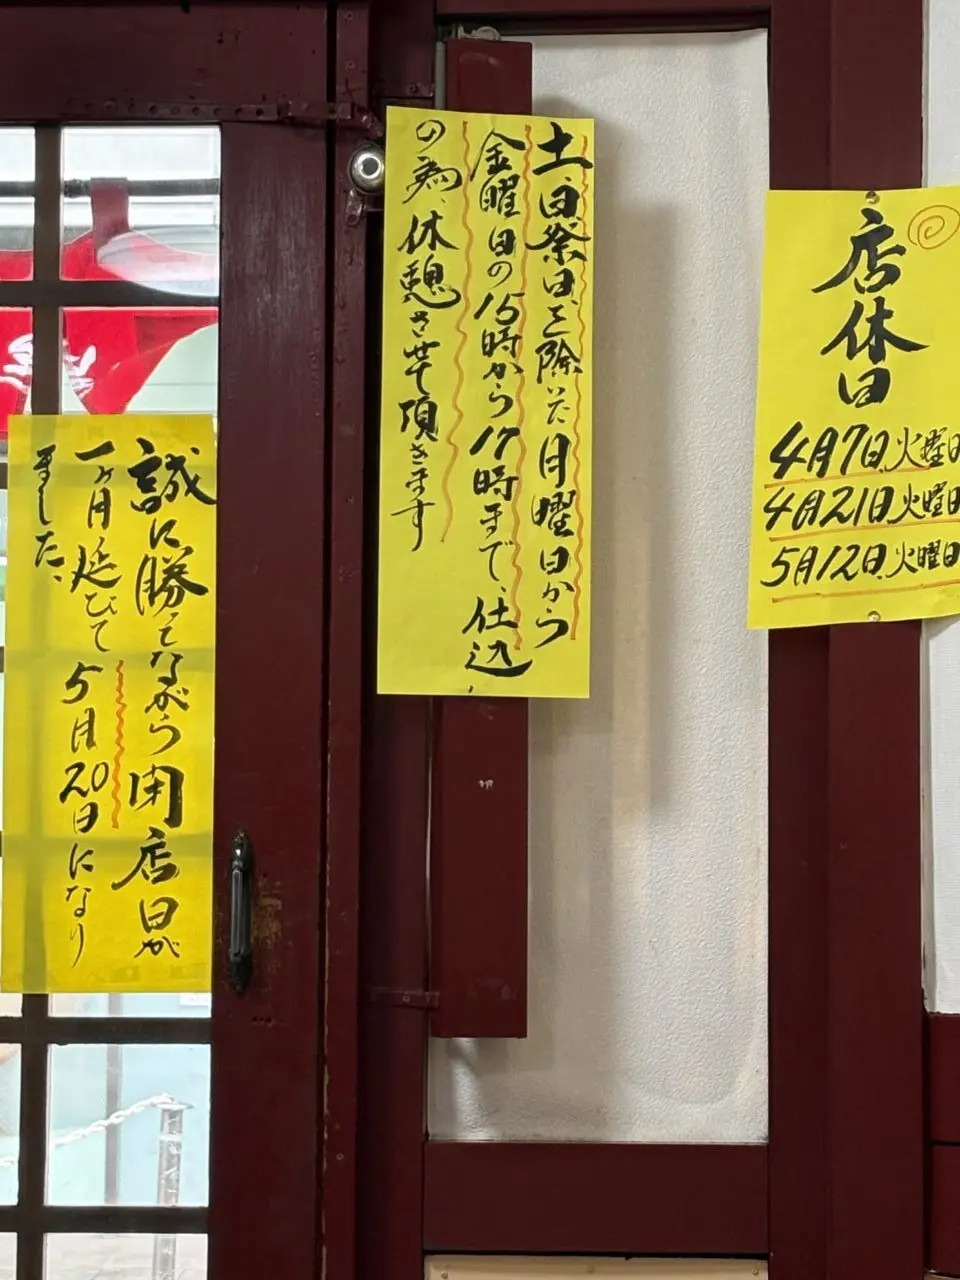 店休日
4月7日.火曜日
4月21日火曜日
5月12日.火曜日
土、日祭日を除いた月曜日から
金曜日の15時から17時まで、仕込
の為、休憩させて頂きます
誠に勝手ながら閉店日が
一ヶ月延びて5月20日になり
ました、